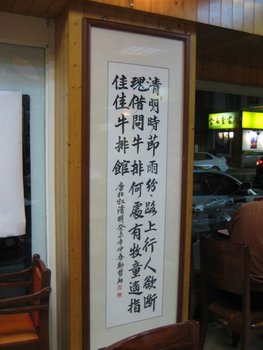 清明時節雨紛〻路上行人欲斷
魂借問牛排何處有牧童遙指
佳佳牛排館
唐杜牧清明癸未年仲春